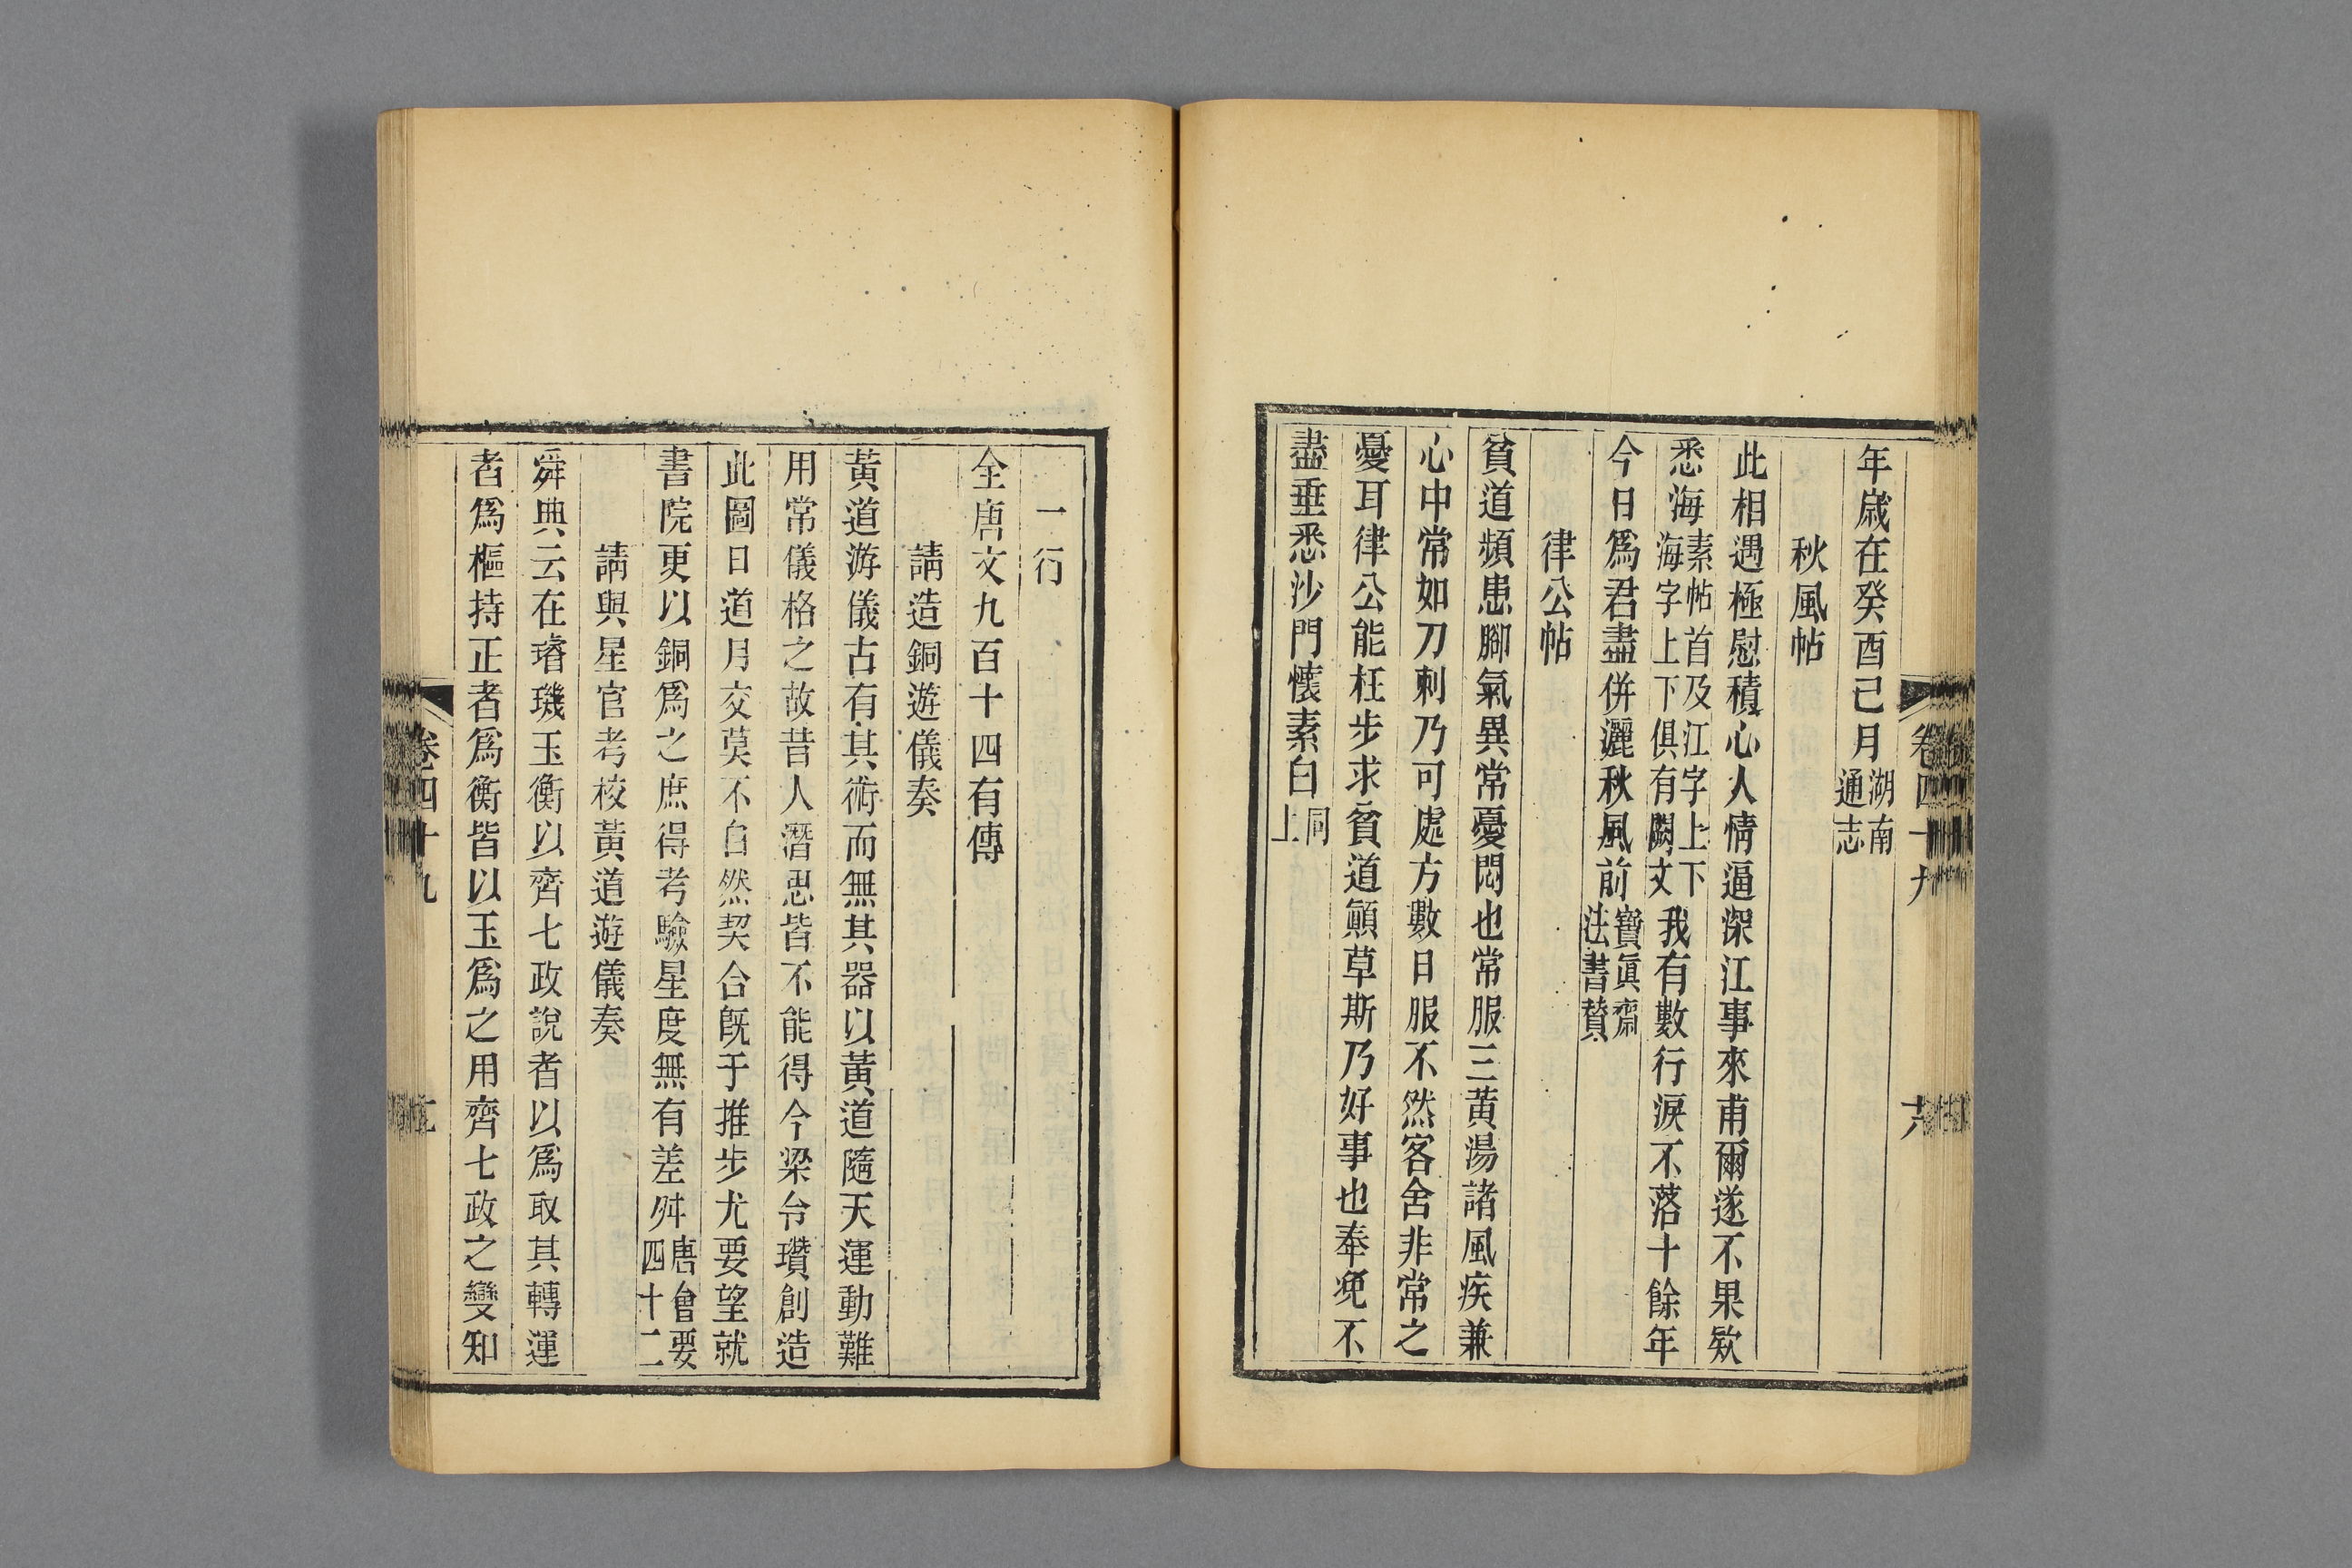 年歲在癸酉己月湖南通志
秋風帖
此相遇極慰積心人情逼深江事來甫爾遂不果欵
悉海素帖首及江字上下海字上下俱有闕文我有數行淚不落十餘年
今日爲君盡併灑秋風前寶眞齋法書贊
律公帖
貧道頻患腳氣異常憂悶也常服三黃湯諸風疾兼
心中常如刀刺乃可處方數日服不然客舍非常之
憂耳律公能枉步求貧道顚草斯乃好事也奉晚不
盡垂悉沙門懷素白同上
卷四十九
六
一行
全唐文九百十四有傳
請造銅遊儀奏
黃道游儀古有其術而無其器以黃道隨天運動難
用常儀格之故昔人潛思皆不能得今梁令瓚創造
此圖日道月交莫不自然契合旣于推步尤要望就
書院更以銅爲之庶得考驗星度無有差舛唐會要四十二
請與星官考校黃道遊儀奏
舜典云在璿璣玉衡以齊七政說者以爲取其轉運
者爲樞持正者爲衡皆以玉爲之用齊七政之變知
卷四十九